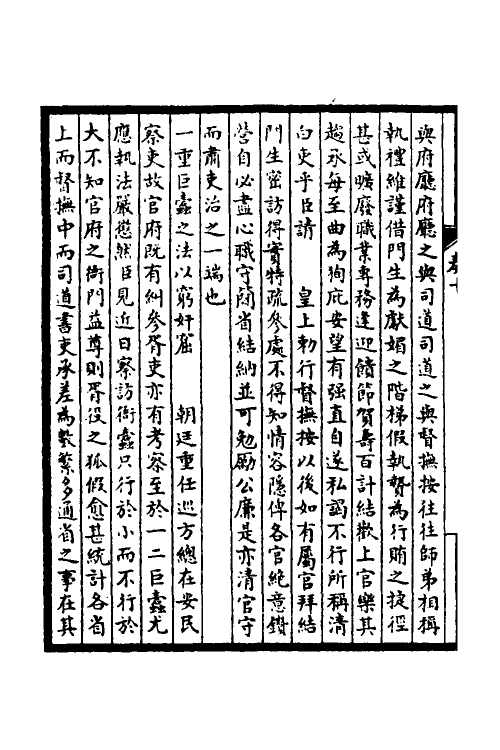 卷十
與府廳府廳之與司道司道之與督撫按往往師弟相稱
執禮維謹借門生為獻媚之階梯假執贄為行賄之捷徑
甚或曠廢職業專務逢迎饋節賀壽百計結歡上官樂其
趨承每至曲為狥庇安望有强直自遂私謁不行所稱清
白吏乎臣請　皇上勅行督撫按以後如有屬官拜結
門生密訪得實特疏參處不得知情容隱俾各官絶意鑽
營自必盡心職守閤省結納並可勉勵公廉是亦清官守
而肅吏治之一端也
一重巨蠹之法以窮奸窟　朝廷重任巡方總在安民
察吏故官府既有糾參胥吏亦有考察至於一二巨蠹尤
應執法嚴懲然臣見近日察訪衙蠹只行於小而不行於
大不知官府之衙門益尊則胥役之狐假愈甚統計各省
上而督撫中而司道書吏承差為數繁多通省之事在其